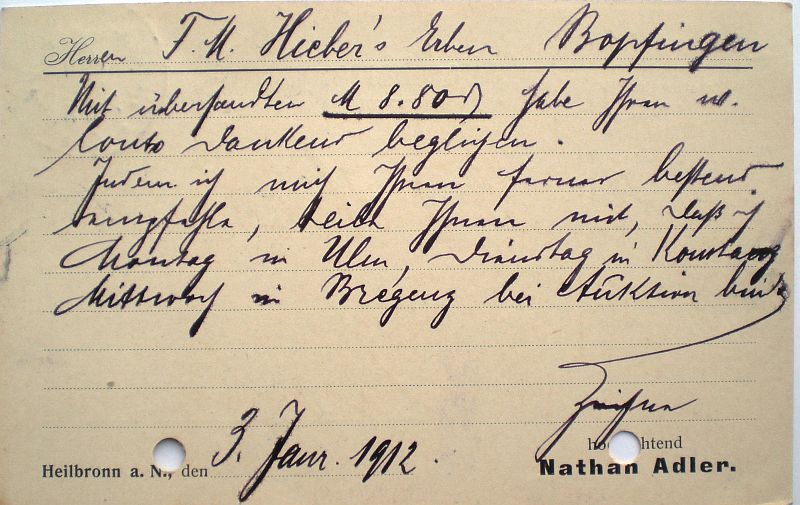 Herren F. M. Hieber's Erben Bopfingen
Mit übersandten M 8.80 d habe Ihren w.
Conto dankend beglichen.
Indem ich mich Ihnen ferner bestens
empfehle, teile Ihnen mit, daß ich
Montag in Ulm, Dienstag in Konstanz
Mittwoch in Bregenz bei Auktion bin
Zeichne
hochachtend
Heilbronn a. N., den 3. Janr. 1912.
Nathan Adler.